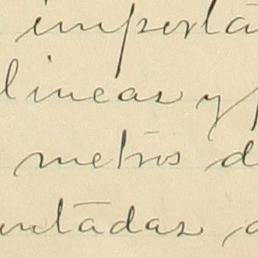 importa
lineas y
metros d
ntadas